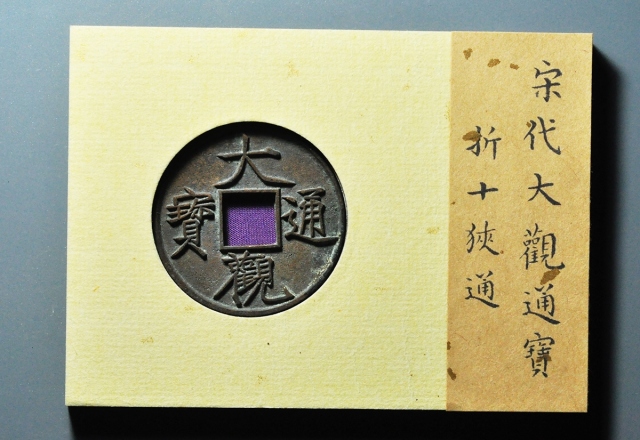 宋代大觀通寶
折十狹通
大觀通寶